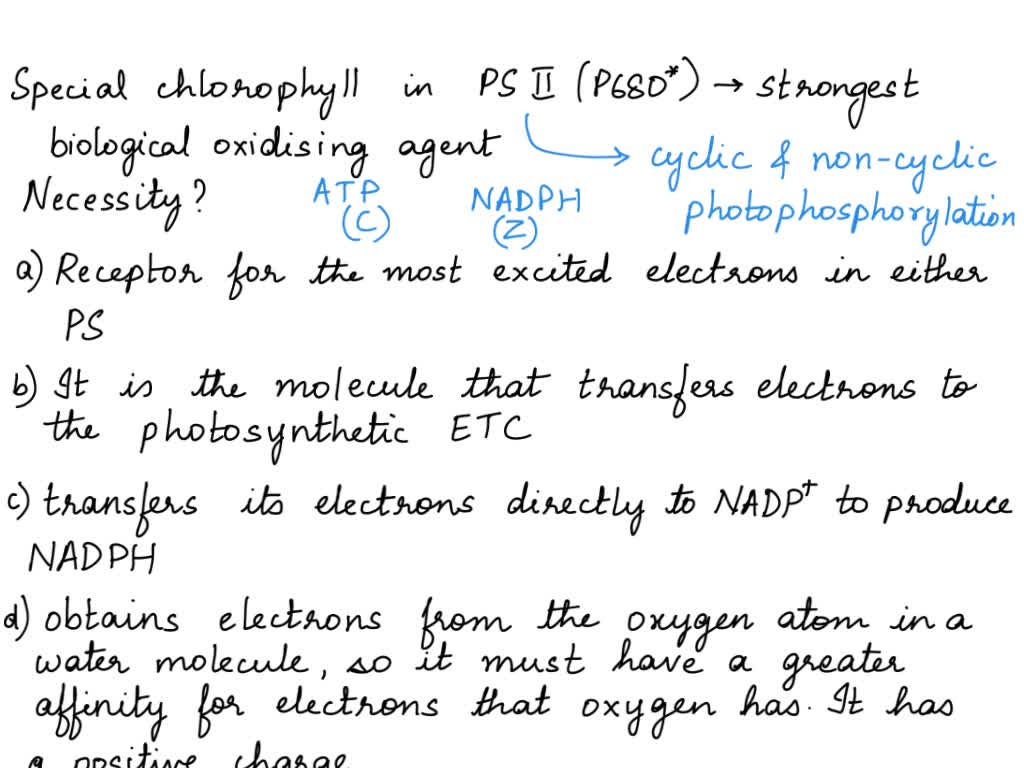 Special chlorophyll in PS II (P680*) → strongest
biological oxidising agent
cyclic & non-cyclic
photophosphorylation
Necessity?
ATP
(C)
NADPH
(Z)
a) Receptor for the most excited electrons in either
PS
b) It is the molecule that transfers electrons to
the photosynthetic ETC
c) transfers its electrons directly to NADP+ to produce
NADPH
d) obtains electrons from the oxygen atom in a
water molecule, so it must have a greater
affinity for electrons that oxygen has. It has
a positive charge